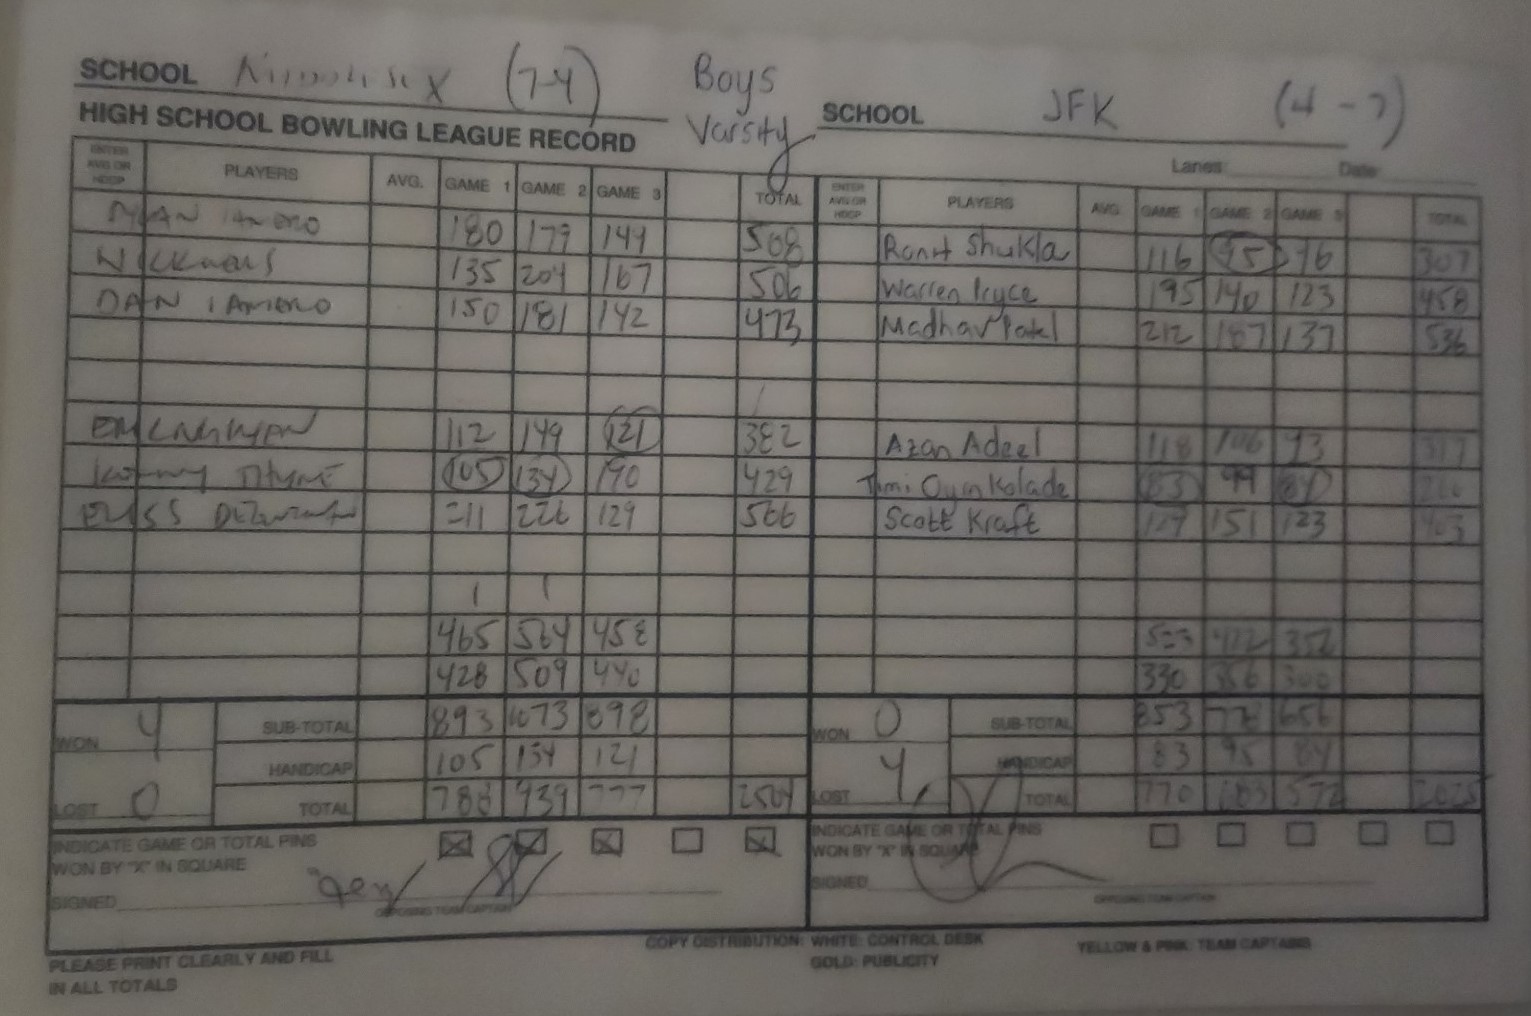 SCHOOL (7-4) Boys Varsity SCHOOL JFK (4-7)
HIGH SCHOOL BOWLING LEAGUE RECORD
Lanes Date
ENTER AVG OR HDCP PLAYERS AVG. GAME 1 GAME 2 GAME 3 TOTAL ENTER AVG OR HDCP PLAYERS AVG. GAME 1 GAME 2 GAME 3 TOTAL
180 179 149 508 Shukla 116 95 96 307
135 204 167 506 Warren 195 140 123 458
DAN 150 181 142 473 Madhav Patel 212 187 137 536
112 149 121 382 Azan Adeel 118 106 93 317
105 134 190 429 83 99 84
211 226 129 566 Scott Kraft 129 151 123 403
465 564 458 523 422 352
428 509 440 330 356 300
WON 4 SUB-TOTAL 893 1073 898 WON 0 SUB-TOTAL 853 778 656
HANDICAP 105 134 121 HANDICAP 83 95 84
LOST 0 TOTAL 788 939 777 2504 LOST 4 TOTAL 770 683 572 2025
INDICATE GAME OR TOTAL PINS INDICATE GAME OR TOTAL PINS
WON BY "X" IN SQUARE WON BY "X" IN SQUARE
SIGNED SIGNED
OPPOSING TEAM CAPTAIN OPPOSING TEAM CAPTAIN
COPY DISTRIBUTION: WHITE: CONTROL DESK YELLOW & PINK: TEAM CAPTAINS
GOLD: PUBLICITY
PLEASE PRINT CLEARLY AND FILL
IN ALL TOTALS